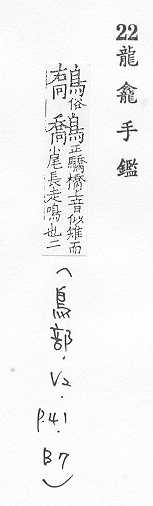 22 龍龕手鑑
俗鷮正驕橋二音似雉而
小尾長走鳴也二
(鳥部．V2．P.41．B7)